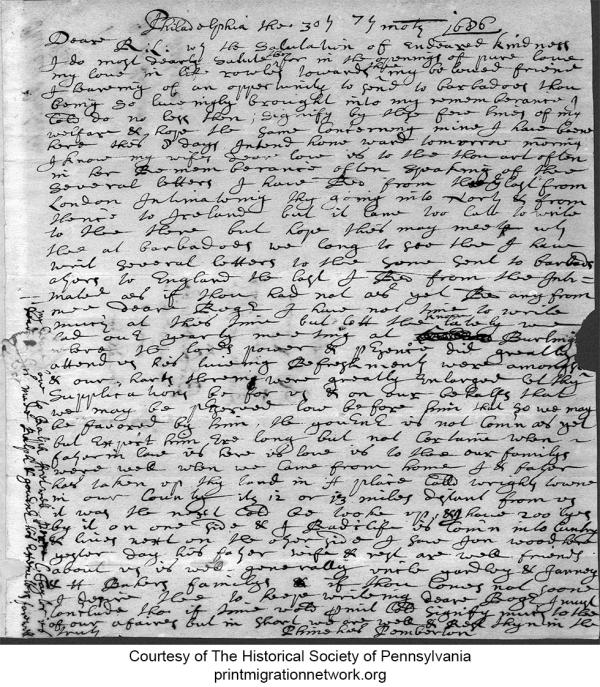 Philadelphia the 30th 7th moth 1686
Deare R.L. wth the Salutation of Endeared kindness
I do most dearly Salute for in the openings of pure love
my love in it rowles towards my beloved friend
I haveing of an oppertunity to send to barbadoes thou
being so liveingly brought into my rememberance I
do no less then signify by these few lines of my
welfare & hope the same concerning mine I have beene
here this 8 days Intend home ward tomorrow morning
I know my wifes deare love is to thee thou art often
in her Rememberance often speaking of thee
severall letters I have from thee last from
London Intimateing thy going into & from
thence to Ireland but it came too late to write
to thee there but hope this may meet wth
thee at barbadoes we long to see thee I have
writ severall letters to thee some sent to barbados
others to England the last I from thee Inti-
mated as if thou had not as yet any from
me deare Roger I have not time to write
much at this time but lately we
had our yearly meeting at Burling
where the lords power & did greatly
attend us his liveing Refreshments were amongst
& our harts therein were greatly Enlarged let thy
Supplications be for us & on our behalfs that
we may be preserved low before him that so we may
be favored by him, the is not com'n as yet
but Expect him Ere long but not certaine when
father in love is here his love is to thee our familys
were well when we came from home I father
has taken up his land in a place wrights towne
in our County its 12 or 13 miles distant from us
it was the next to be tooke up & I have 200
by it on one side & J Radclife is com'n into Country
& lives next on the other side I saw Jos wood
yester day his father wife & rest are well friends
about us is well generally & Harvey
& H Bakers familys if thou comes not soone
I desire thee to keepe writeing deare Roger I must
conclude tho if time would signify much to thee
of our afaires but in short we are well & Rest thyn in the
truth Phinehas Pemberton
Courtesy of The Historical Society of Pennsylvania
printmigrationnetwork.org